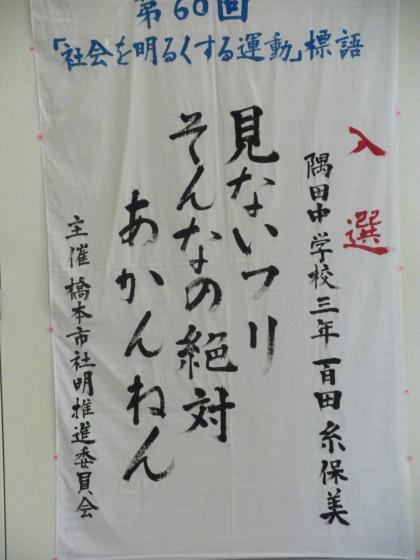 第60回
「社会を明るくする運動」標語
入選
隅田中学校三年 百田 糸保美
見ないフリ
そんなの絶対
あかんねん
主催 橋本市社明推進委員会